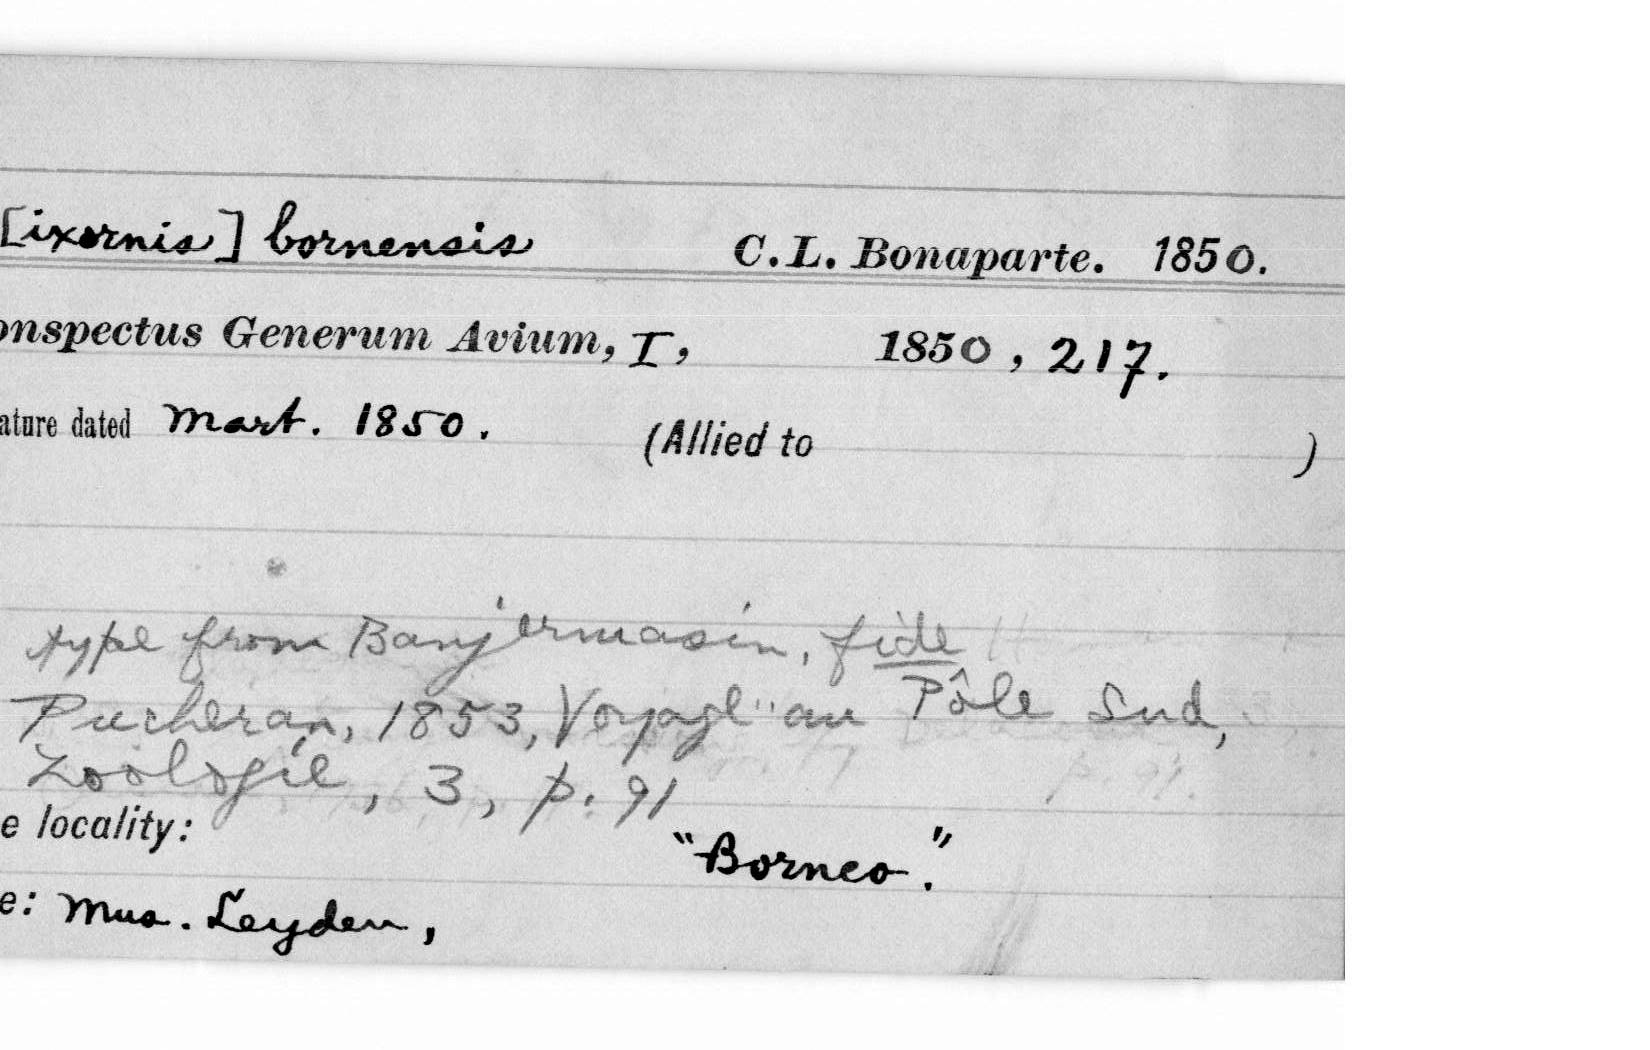 [ixornis] bornensis C.L. Bonaparte. 1850.
onspectus Generum Avium, I, 1850, 217.
ature dated Mart. 1850. (Allied to )
type from Banjermasin, fide
Pucheran, 1853, Voyage au Pôle Sud,
Zoologie, 3, p. 91
e locality: "Borneo."
e: Mus. Leyden,